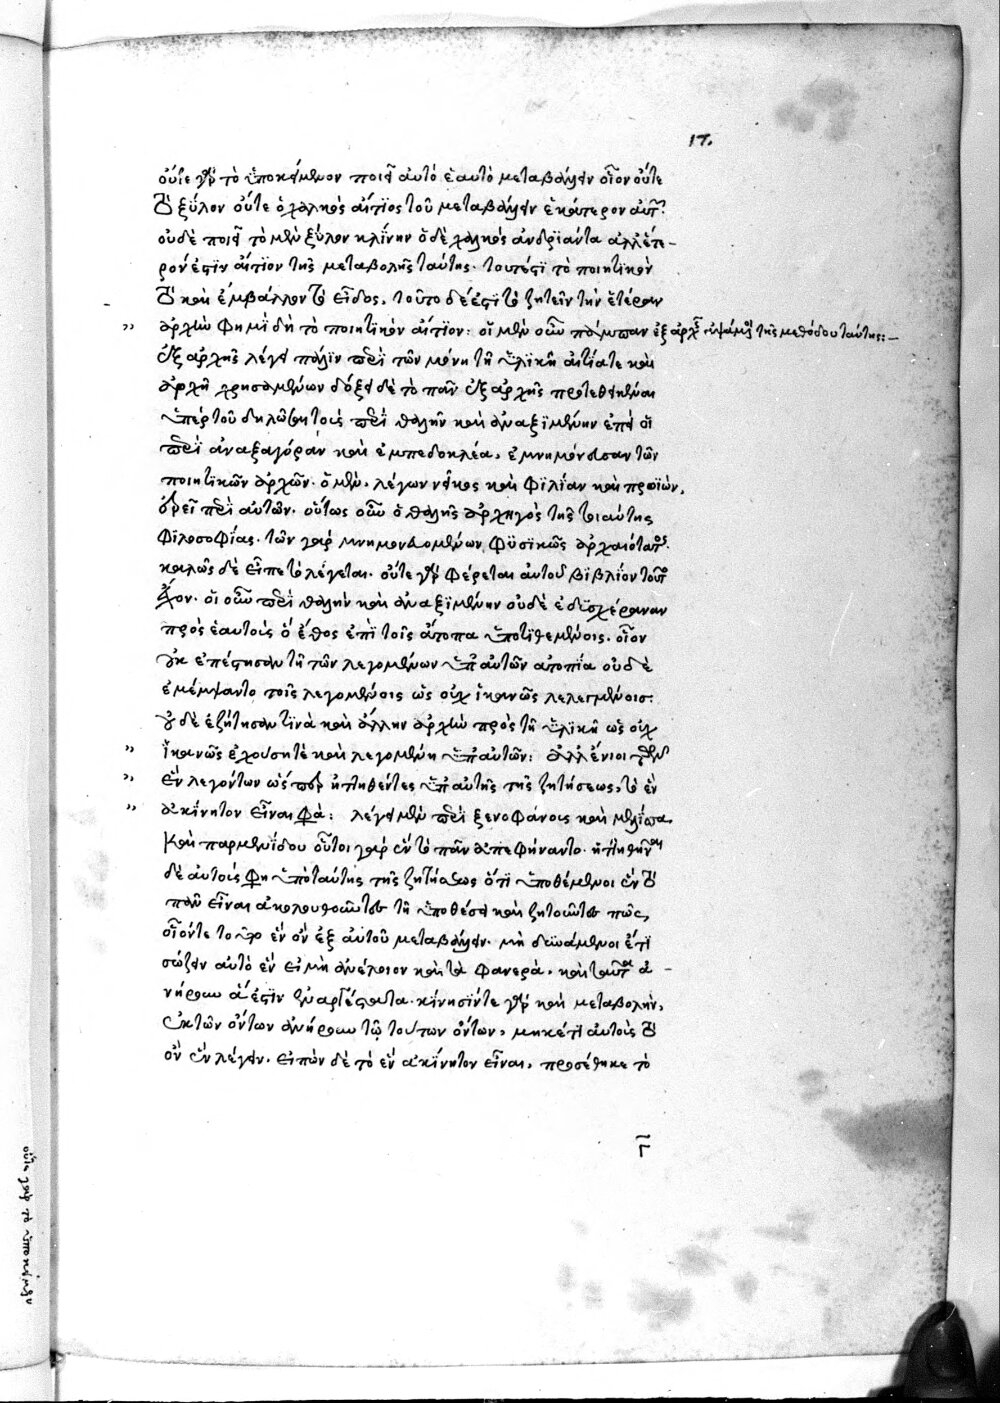 17.
οὔτε γὰρ τὸ ὑποκείμενον ποιεῖ αὐτὸ ἑαυτὸ μεταβάλλειν οἷον οὔτε
τὸ ξύλον οὔτε ὁ χαλκὸς αἴτιος τοῦ μεταβάλλειν ἑκάτερον αὐτῶν.
οὐδὲ ποιεῖ τὸ μὲν ξύλον κλίνην ὁ δὲ χαλκὸς ἀνδριάντα ἀλλ' ἕτε-
ρόν ἐστιν αἴτιον τῆς μεταβολῆς ταύτης. τουτέστι τὸ ποιητικὸν
τὸ καὶ ἐμβάλλον τὸ εἶδος. τοῦτο δέ ἐστι τὸ ζητεῖν τὴν ἑτέραν
ἀρχὴν φημὶ δὴ τὸ ποιητικὸν αἴτιον: οἱ μὲν οὖν πάμπαν ἐξ ἀρχῆς ἁψάμενοι τῆς μεθόδου ταύτης:-
ἐξ ἀρχῆς λέγει πάλιν περὶ τῶν μόνῃ τῇ ὑλικῇ αἰτίᾳ τε καὶ
ἀρχῇ χρησαμένων δόξει δὲ τὸ πᾶν ἐξ ἀρχῆς προτεθεῖναι
ὑπὲρ τοῦ δηλωθῆναι τοὺς περὶ Θαλῆν καὶ Ἀναξιμένην ἐπεὶ οἱ
περὶ ἀναξαγόραν καὶ ἐμπεδοκλέα, ἐμνημόνευσαν τῶν
ποιητικῶν ἀρχῶν. ὁ μὲν, λέγων νεῖκος καὶ φιλίαν καὶ προϊὼν,
ἐρεῖ περὶ αὐτῶν. οὕτως οὖν ὁ θαλῆς ἀρχηγὸς τῆς τοιαύτης
φιλοσοφίας. τῶν γὰρ μνημονευομένων φυσικῶς ἀρχαιότατος.
καλῶς δὲ εἶπε τὸ λέγεται. οὔτε γὰρ φέρεται αὐτοῦ βιβλίον τοι
οἱ οὖν περὶ θαλῆν καὶ ἀναξιμένην οὐδὲ ἐδυσχέραναν
πρὸς ἑαυτοὺς ὃ ἔθος ἐπὶ τοῖς ἄτοπα ὑποτιθεμένοις. οἷον
οὐκ ἐπέστησαν τῇ τῶν λεγομένων ὑπ' αὐτῶν ἀτοπίᾳ οὐδὲ
ἐμέμψαντο τοῖς λεγομένοις ὡς οὐχ ἱκανῶς λελεγμένοις.
οὐδὲ ἐζήτησαν τινὰ καὶ ἄλλην ἀρχὴν πρὸς τῇ ὑλικῇ ὡς οὐχ
ἱκανῶς ἐχούσῃ τὲ καὶ λεγομένῃ ὑπ' αὐτῶν: ἀλλ' ἔνιοι τῶν
ἓν λεγόντων ὥσπερ ἡττηθέντες ὑπ' αὐτῆς τῆς ζητήσεως, τὸ ἓν
ἀκίνητον εἶναι φα: λέγει μὲν περὶ ξενοφάνους καὶ μελίσσου
καὶ παρμενίδου οὗτοι γὰρ ἓν τὸ πᾶν ἀπεφήναντο. ἡττηθῆναι
δὲ αὐτοὺς φη ὑπὸ ταύτης τῆς ζητήσεως ὅτι ὑποθέμενοι ἓν τὸ
πᾶν εἶναι ἀκολουθοῦντες τῇ ὑποθέσει καὶ ζητοῦντες πῶς,
οἷόν τε τοῦτο ἓν ὂν ἐξ αὐτοῦ μεταβάλλειν. μὴ δυνάμενοι ἔτι
σώζειν αὐτὸ ἓν εἰ μὴ ἀνέλοιον καὶ τὰ φανερὰ. καὶ ταῦτα ἀ-
νήρουν ἅ ἐστιν ἐναργέστατα. κίνησίν τε γὰρ καὶ μεταβολὴν,
ἐκ τῶν ὄντων ἀνήρουν τῷ τούτων ὄντων, μηκέτι αὐτοὺς τὸ
ὂν ἓν λέγειν. εἰπὼν δὲ τὸ ἓν ἀκίνητον εἶναι, προσέθηκε τὸ
γ
οὔτε γὰρ τὸ ὑποκείμενον